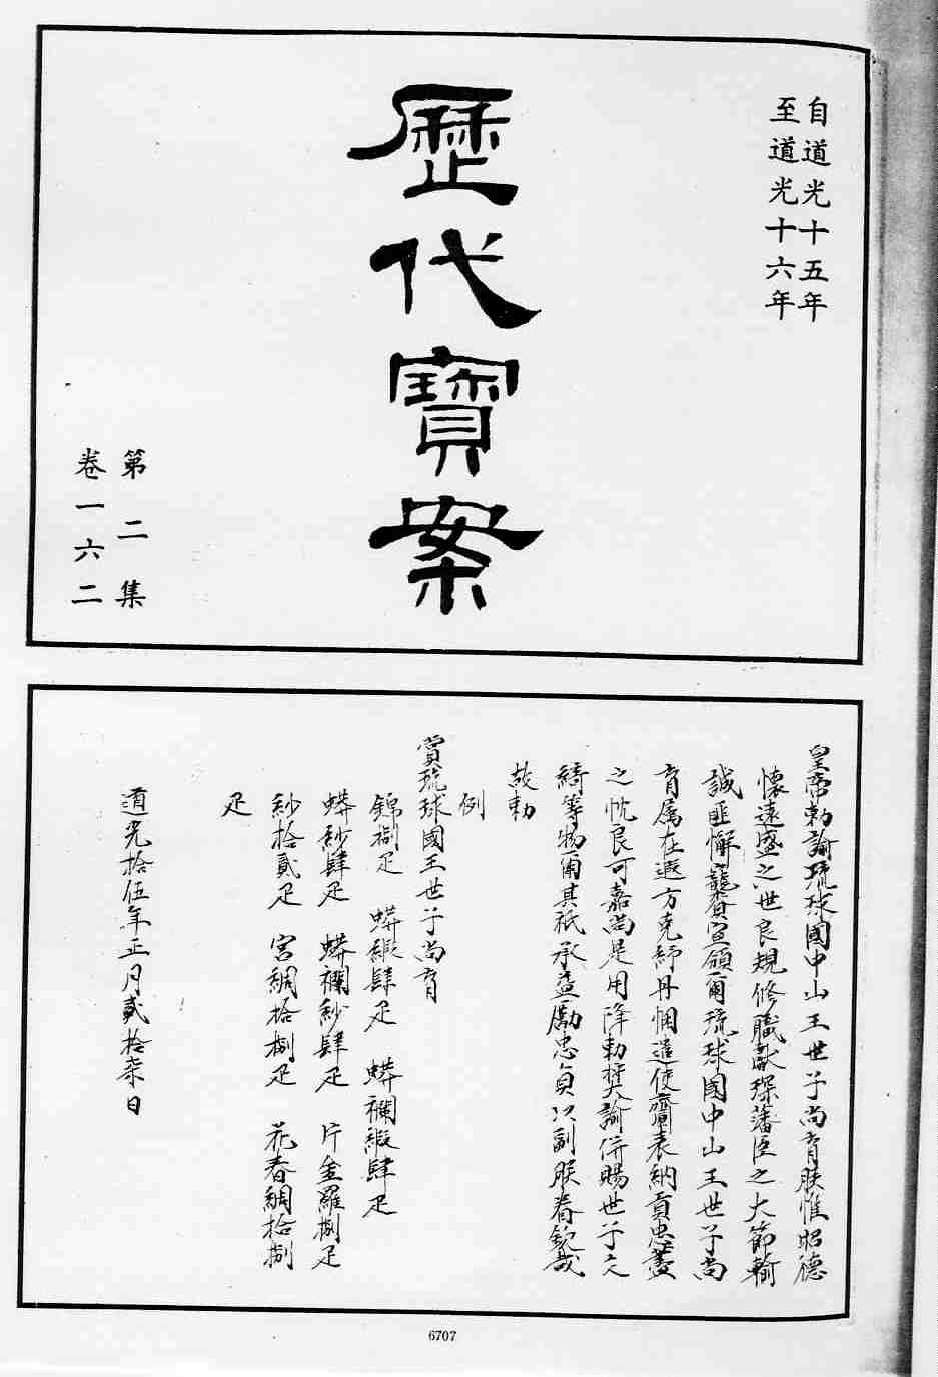 自道光十五年
至道光十六年
歷代寶案
第二集
卷一六二
皇帝勅諭琉球國中山王世子尚育朕惟昭德
懷遠盛世之良規修職獻琛藩臣之大節輸
誠匪懈寵賚宜頒爾琉球國中山王世子尚
育属在遐方克紓丹悃遣使齎表納貢忠藎
之忱良可嘉尚是用降勅奬諭併賜世子文
綺等物爾其祇承益勵忠貞以副朕眷欽哉
故勅
例
賞琉球國王世子尚育
錦捌疋 蟒緞肆疋 蟒襴緞肆疋
蟒紗肆疋 蟒襴紗肆疋 片金羅捌疋
紗拾貳疋 宮綢拾捌疋 花春綢拾捌
疋
道光拾伍年正月貳拾柒日
6707